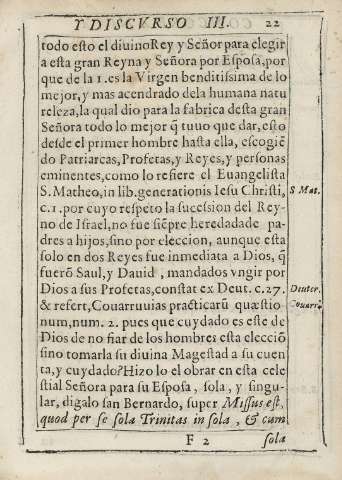 Y DISCVRSO III. 22
todo esto el diuino Rey y Señor para elegir
a esta gran Reyna y Señora por Esposa, por
que de la 1. es la Virgen benditissima de lo
mejor, y mas acendrado de la humana natu
releza, la qual dio para la fabrica desta gran
Señora todo lo mejor q̃ tuuo que dar, esto
desde el primer hombre hasta ella, escogiẽ
do Patriarcas, Profetas, y Reyes, y personas
eminentes, como lo refiere el Euangelista
S. Matheo, in lib. generationis Iesu Christi, S Mat.
c. 1. por cuyo respeto la sucession del Rey-
no de Israel, no fue siẽpre heredadade pa-
dres a hijos, sino por eleccion, aunque esta
solo en dos Reyes fue inmediata a Dios, q̃
fuerõ Saul, y Dauid, mandados vngir por
Dios a sus Profetas, constat ex Deut. c. 27. Diuter.
& refert, Couarruuias practicarũ quæstio Couarr.
num, num. 2. pues que cuydado es este de
Dios de no fiar de los hombres esta elecciõ
sino tomarla su diuina Magestad a su cuen
ta, y cuydado? Hizo lo el obrar en esta cele
stial Señora para su Esposa, sola, y singu-
lar, digalo san Bernardo, super Missus est,
quod per se sola Trinitas in sola, & cum
F 2 sola